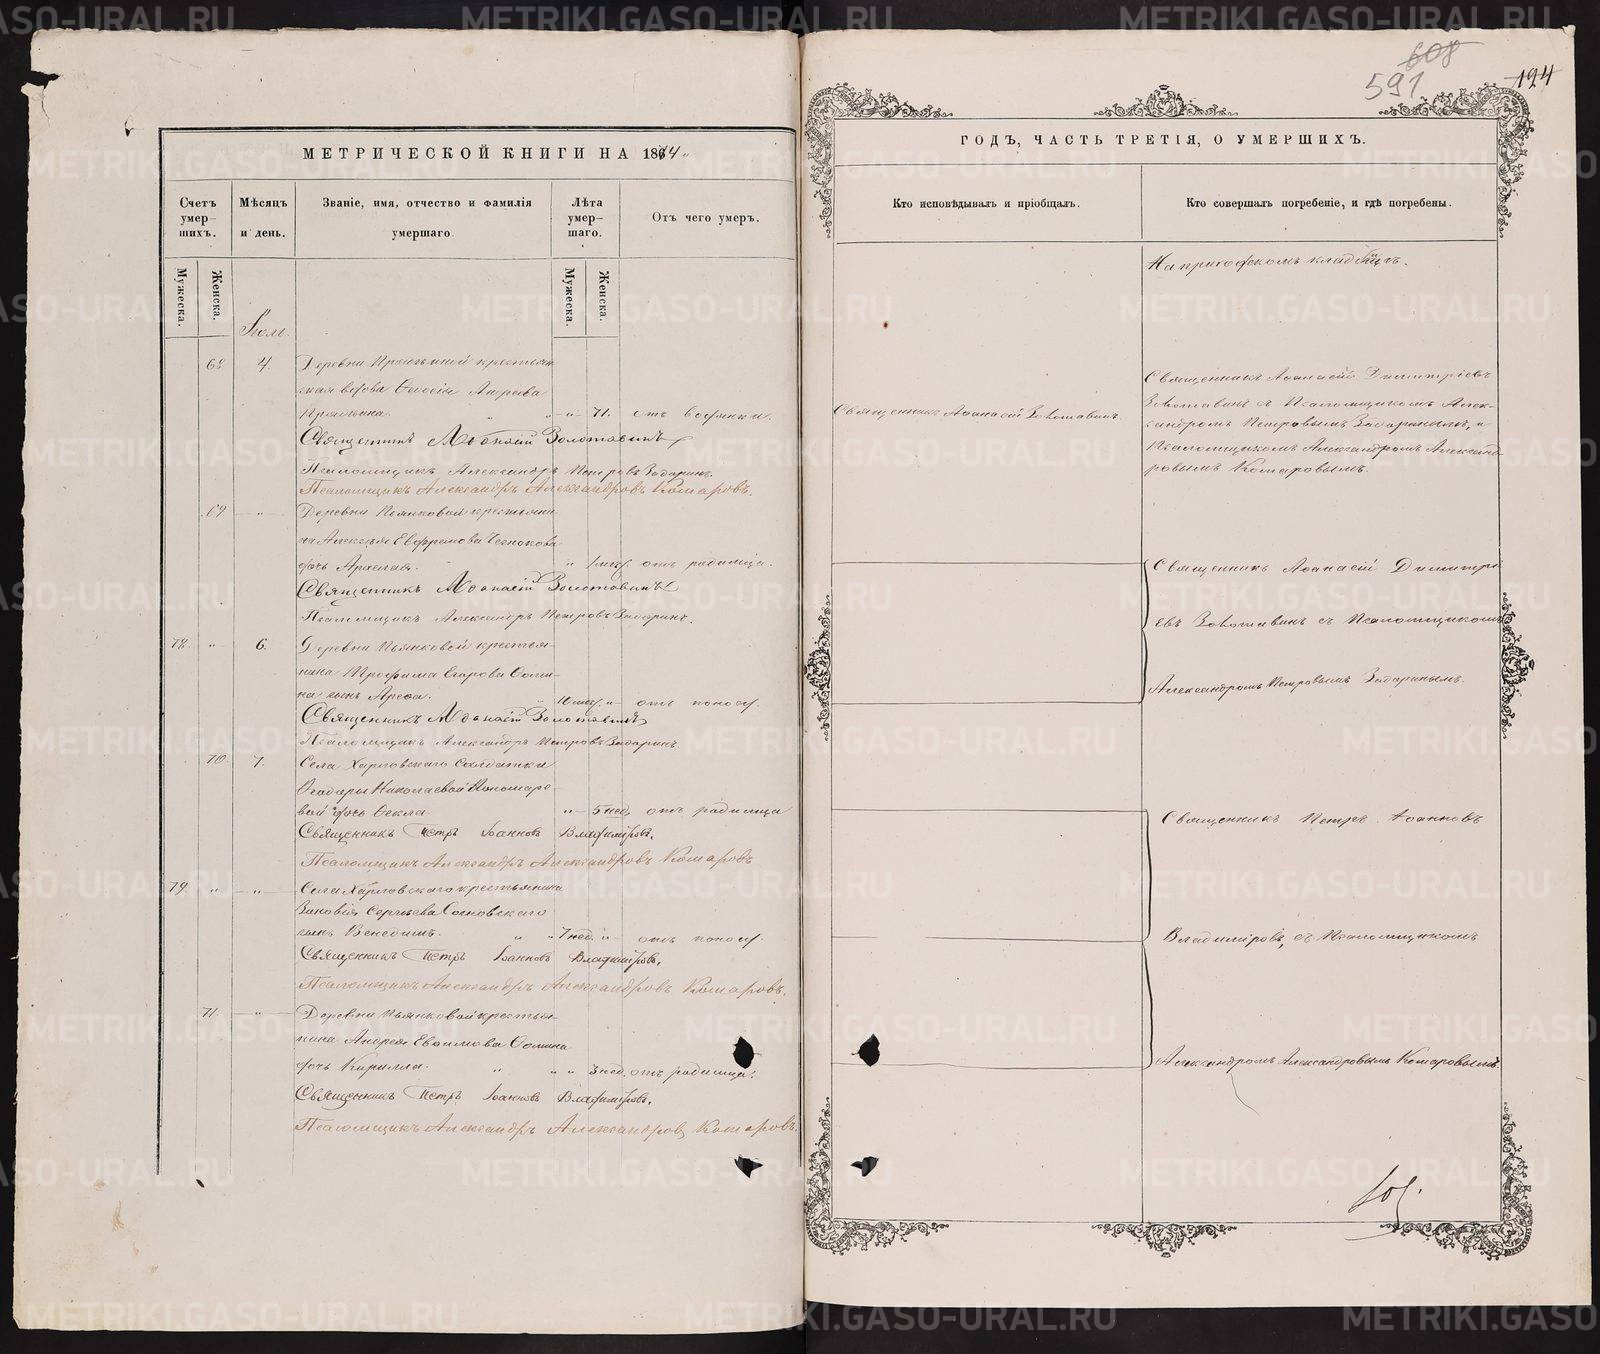 МЕТРИЧЕСКОЙ КНИГИ НА 1874
Счетъ умер-шихъ.
Мѣсяцъ и день.
Званіе, имя, отчество и фамилія умершаго
Лѣта умер-шаго.
Отъ чего умеръ.
Мужеска.
Женска.
Мужеска.
Женска.
Іюль.
68 4. Деревни крестьян-
ская вдова Ѳеодосія Андреева
71. отъ водянки.
Священникъ Аѳанасій Золотавинъ
Псаломщикъ Александръ Петровъ Задоринъ.
Псаломщикъ Александръ Александровъ Комаровъ.
69 " Деревни Пьянковой крестьяни-
на Алексѣя Евфремова Чеснокова
дочь " отъ родимца.
Священникъ Аѳанасій Золотавинъ
Псаломщикъ Александръ Петровъ Задоринъ.
78 " 6. Деревни Пьянковой крестья-
нина Трофима Егорова Соми-
на сынъ Ареѳа. 10 мѣс. " отъ поносу.
Священникъ Аѳанасій Золотавинъ
Псаломщикъ Александръ Петровъ Задоринъ
70 7. Села Харловскаго Солдатки
Ѳеодоры Николаевой Пономаре-
вой дочь Ѳекла. " 5 нед. отъ родимца
Священникъ Петръ Іоанновъ Владиміровъ.
Псаломщикъ Александръ Александровъ Комаровъ
79 " " Села Харловскаго крестьянина
Зиновія Сергѣева Сосновскаго
сынъ " " 7 нед. " отъ поносу.
Священникъ Петръ Іоанновъ Владиміровъ.
Псаломщикъ Александръ Александровъ Комаровъ.
71. " Деревни Пьянковой крестья-
нина Андрея Евѳимова Сомина
дочь Кирилла. " " " 3 нед. отъ родимца.
Священникъ Петръ Іоанновъ Владиміровъ.
Псаломщикъ Александръ Александровъ Комаровъ.
608
591
124
ГОДЪ, ЧАСТЬ ТРЕТІЯ, О УМЕРШИХЪ.
Кто исповѣдывалъ и пріобщалъ.
Кто совершалъ погребеніе, и гдѣ погребены.
На приходскомъ кладбищѣ.
Священникъ Аѳанасій Золотавинъ.
Священникъ Аѳанасій Димитріевъ
Золотавинъ съ Псаломщикомъ Алек-
сандромъ Петровымъ Задоринымъ, и
Псаломщикомъ Александромъ Александ-
ровымъ Комаровымъ.
Священникъ Аѳанасій Димитрі-
евъ Золотавинъ съ Псаломщикомъ
Александромъ Петровымъ Задоринымъ.
Священникъ Петръ Іоанновъ
Владиміровъ, съ Псаломщикомъ
Александромъ Александровымъ Комаровымъ.
METRIKI.GASO-URAL.RU